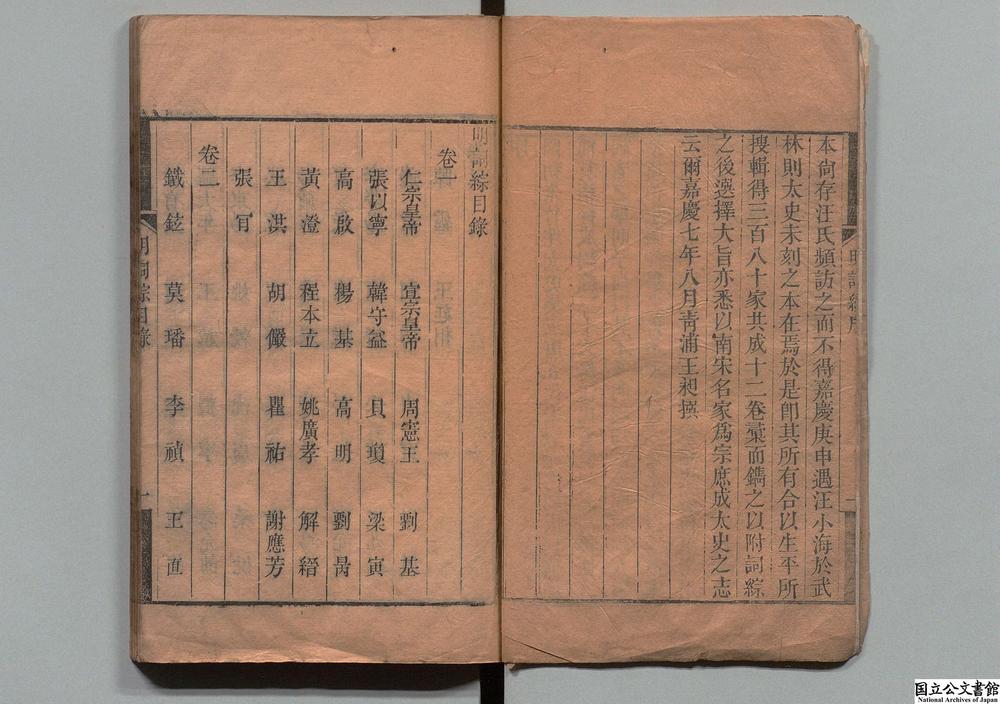 本尙存汪氏頻訪之而不得嘉慶庚申遇汪小海於武
林則太史未刻之本在焉於是卽其所有合以生平所
搜輯得三百八十家共成十二卷彙而鐫之以附詞綜
之後選擇大旨亦悉以南宋名家爲宗庶成太史之志
云爾嘉慶七年八月靑浦王昶撰
明詞綜序
明詞綜目錄
卷一
仁宗皇帝 宣宗皇帝 周憲王 劉基
張以寧 韓守益 貝瓊 梁寅
高啟 楊基 高明 劉昺
黃澄 程本立 姚廣孝 解縉
王洪 胡儼 瞿祐 謝應芳
張肎
卷二
鐵鉉 莫璠 李禎 王直
明詞綜目錄
一
国立公文書館
National Archives of Japan